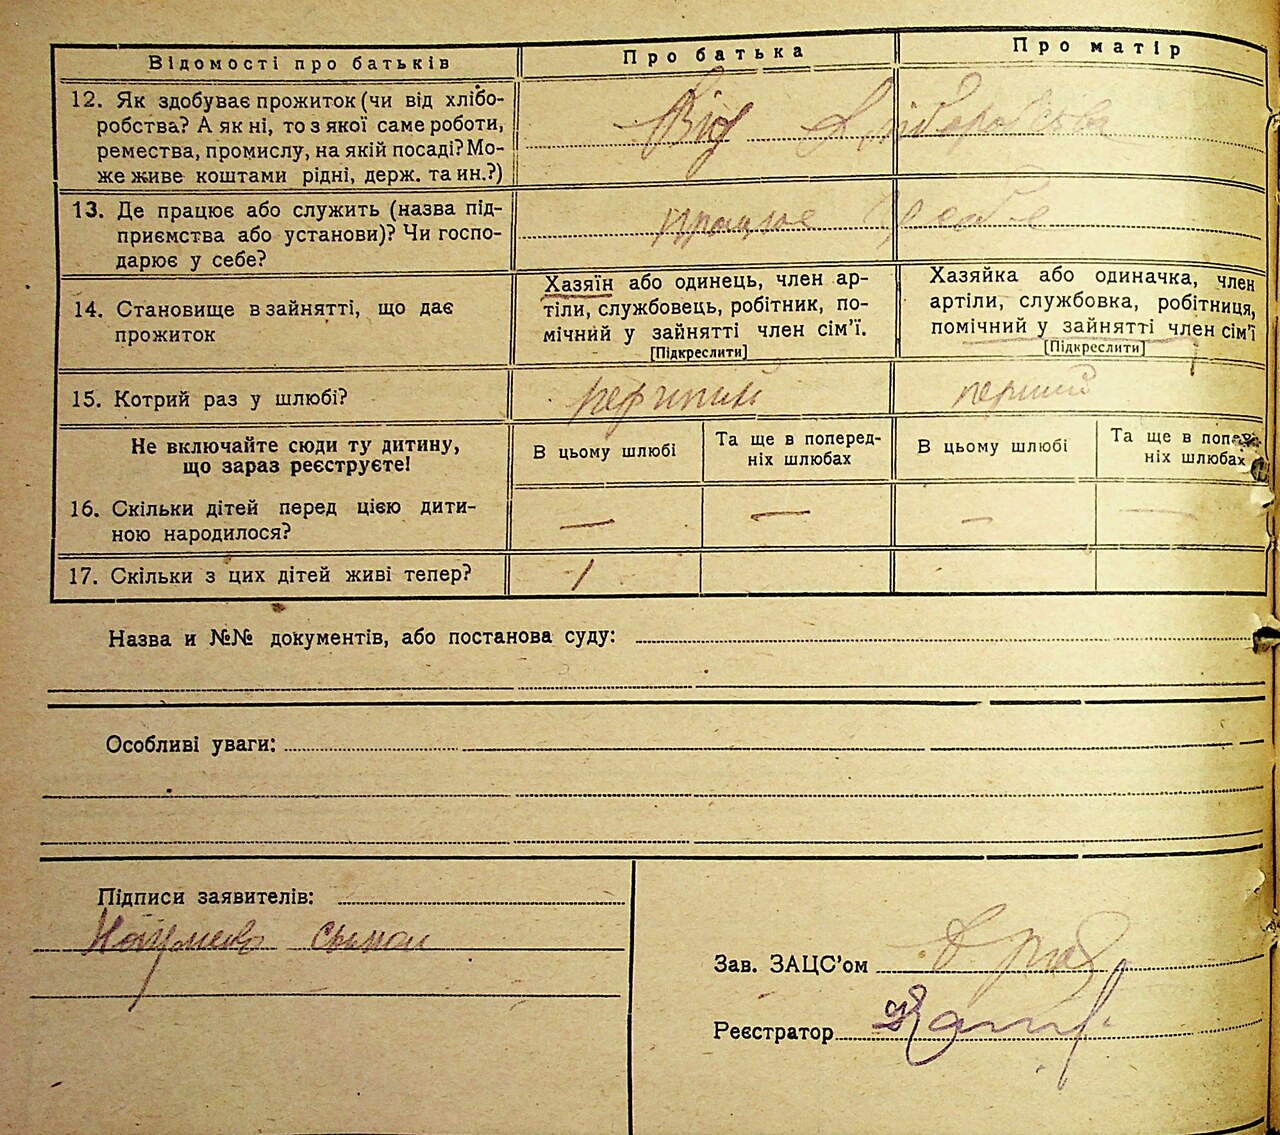 Відомості про батьків Про батька Про матір
12. Як здобуває прожиток (чи від хлібо-
робства? А як ні, то з якої саме роботи,
ремества, промислу, на якій посаді? Мо-
же живе коштами рідні, держ. та ин.?)
Від хліборобства
13. Де працює або служить (назва під-
приємства або установи)? Чи госпо-
дарює у себе?
працює у себе
14. Становище в зайнятті, що дає
прожиток
Хазяїн або одинець, член ар-
тілі, службовець, робітник, по-
мічний у зайнятті член сім'ї.
[Підкреслити]
Хазяйка або одиначка, член
артіли, службовка, робітниця,
помічний у зайнятті член сім'ї
[Підкреслити]
15. Котрий раз у шлюбі? перший перший
Не включайте сюди ту дитину,
що зараз реєструєте!
В цьому шлюбі
Та ще в поперед-
ніх шлюбах
В цьому шлюбі
Та ще в попе
ніх шлюбах
16. Скільки дітей перед цією дити-
ною народилося?
— — — —
17. Скільки з цих дітей живі тепер?
Назва и №№ документів, або постанова суду:
Особливі уваги:
Підписи заявителів:
Зав. ЗАЦС'ом
Реєстратор